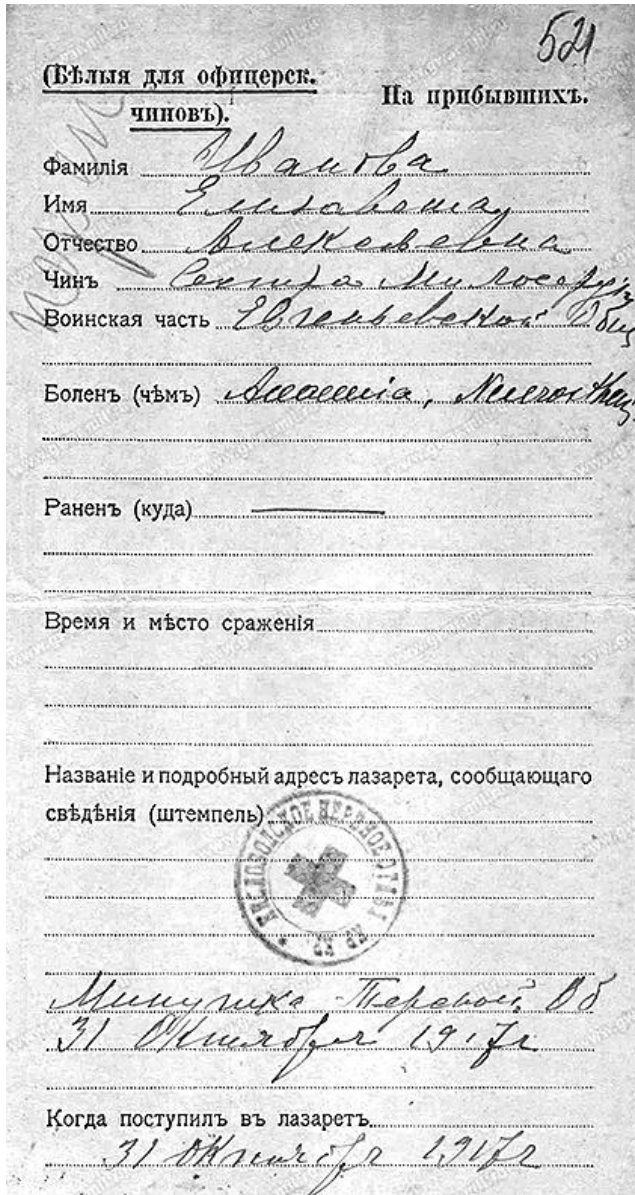 521
(Бѣлыя для офицерск. чиновъ).
На прибывшихъ.
Фамилія Иванова
Имя Елизавета
Отчество Алексѣевна
Чинъ Сестра Милосерд
Воинская часть Евгеньевской Общ
Боленъ (чѣмъ) Anaemia, Neurasthen
Раненъ (куда) —
Время и мѣсто сраженія
Названіе и подробный адресъ лазарета, сообщающаго
свѣдѣнія (штемпель)
КИСЛОВОДСКОЕ НЕРВНОЕ ОТД. КР. КР.
Терской Об
31 Октября 1917 г
Когда поступилъ въ лазаретъ
31 Октября 1917 г